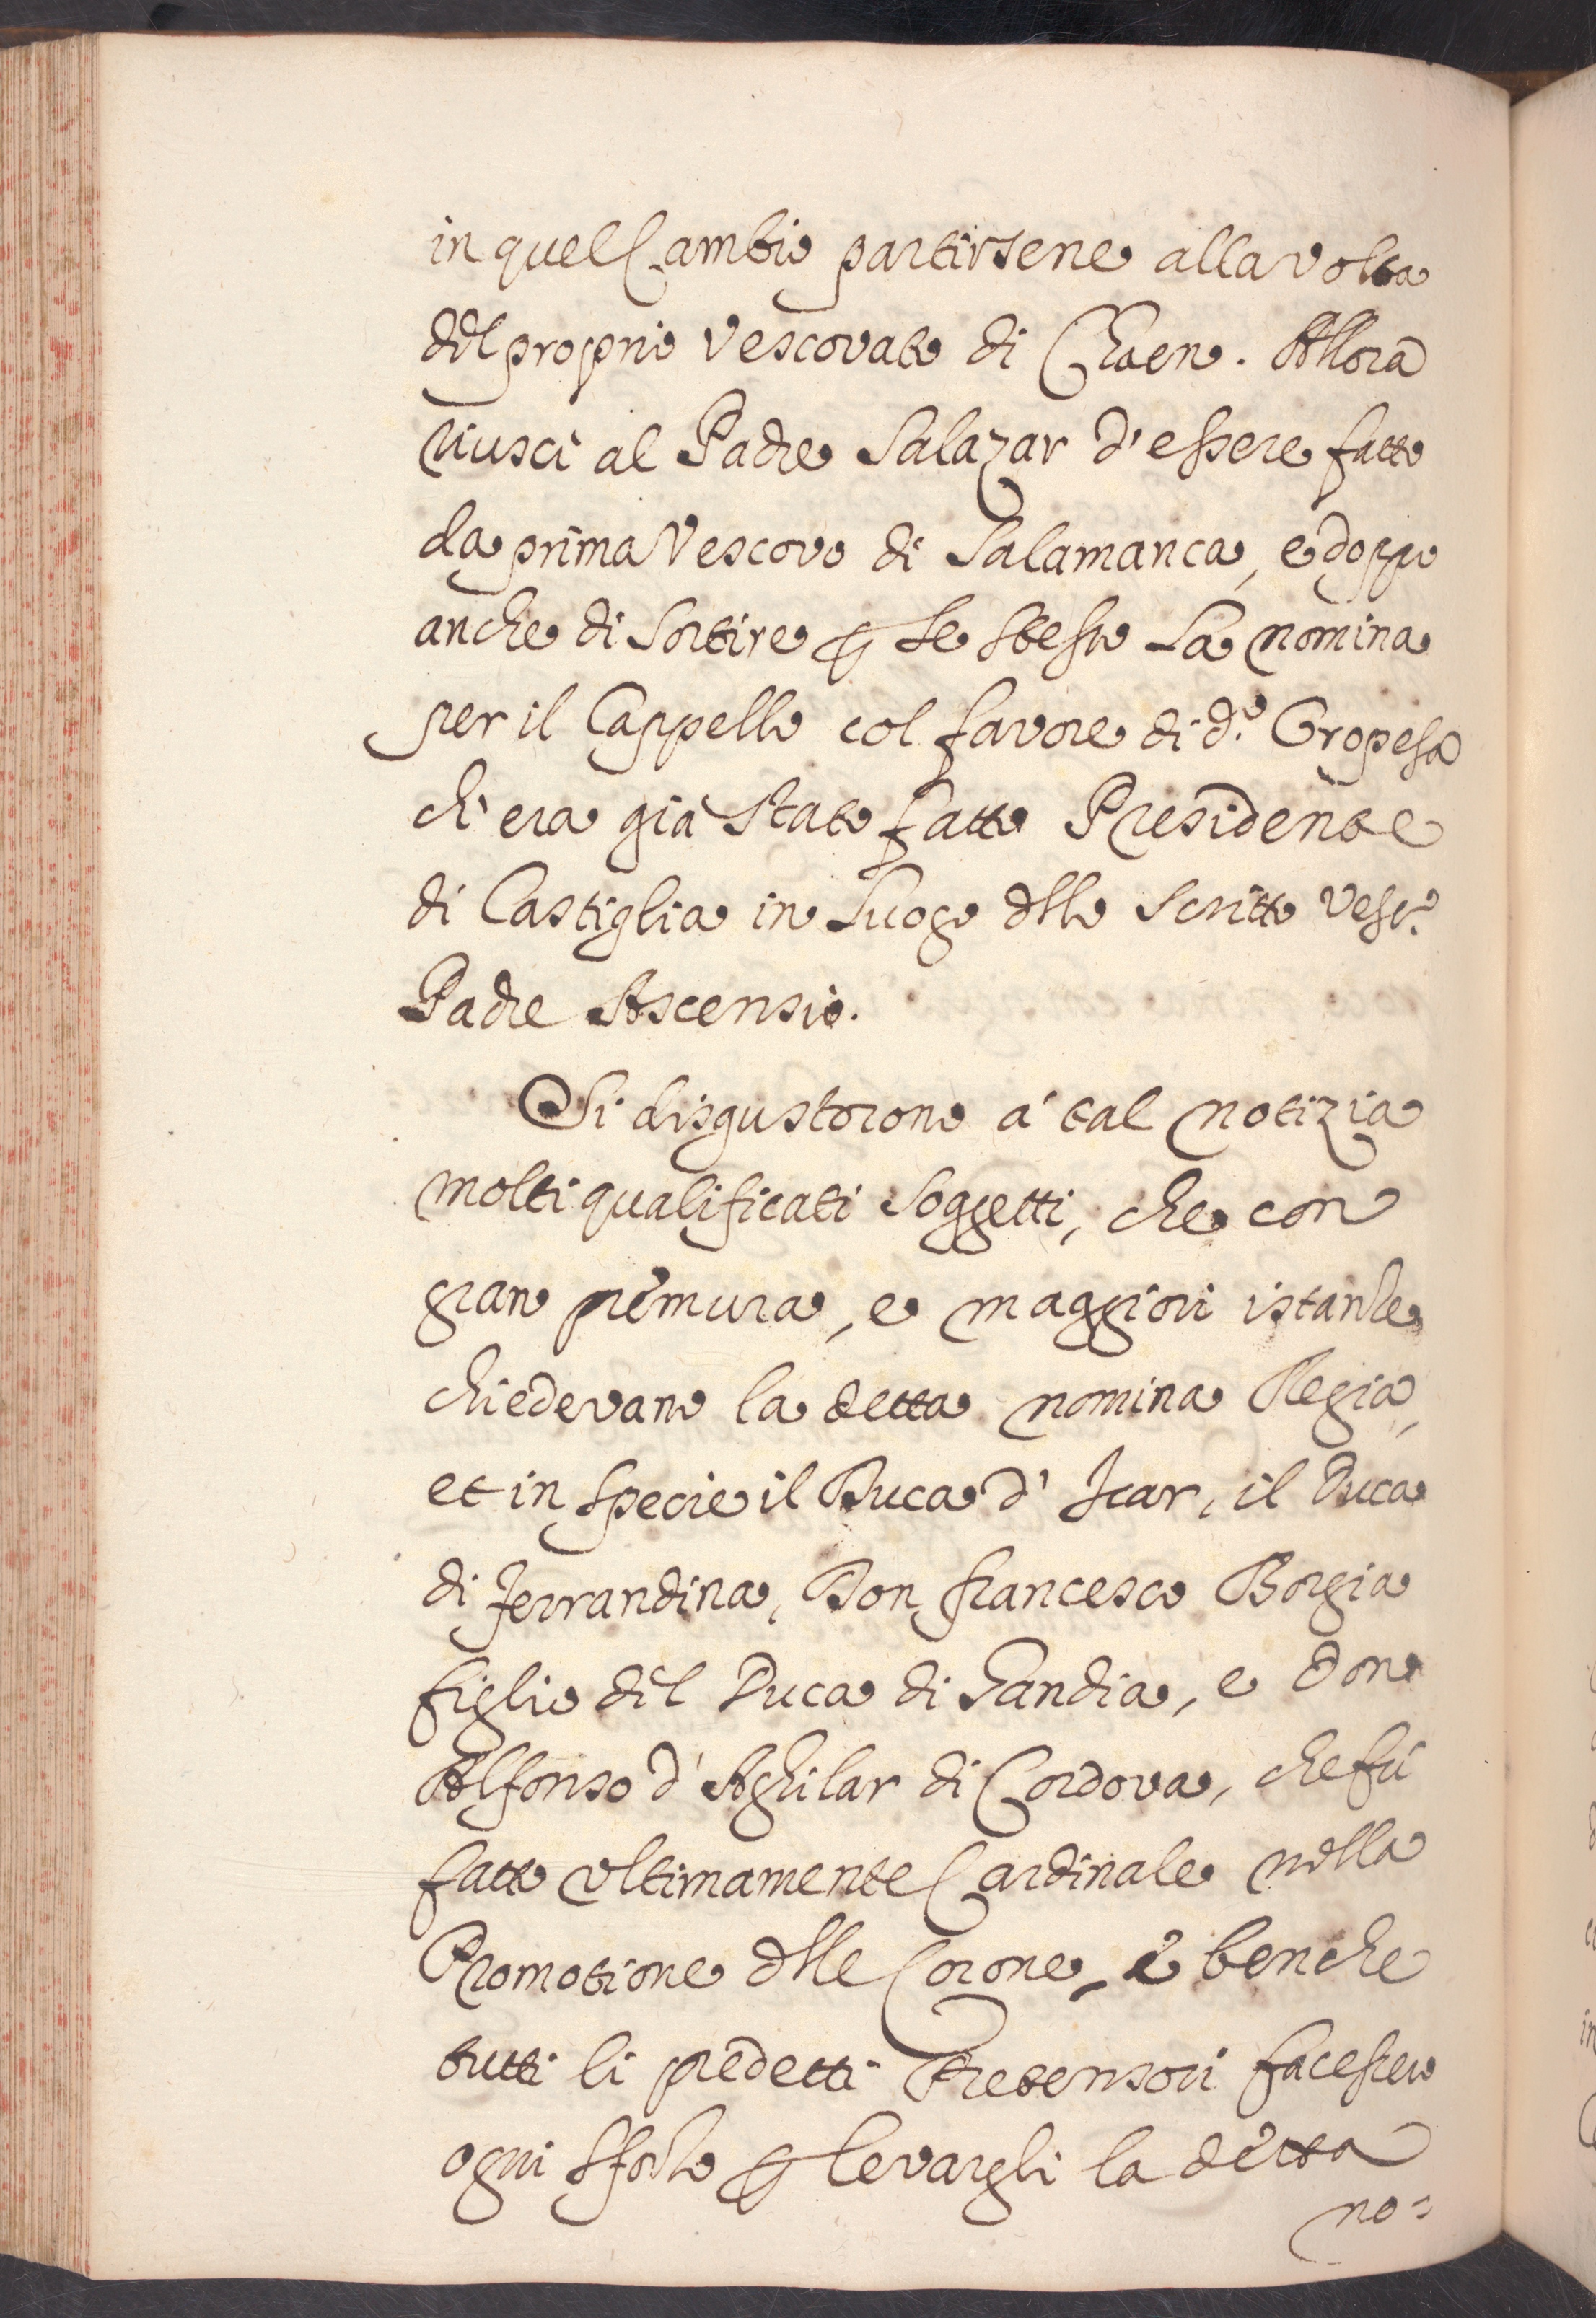 in quel Cambio partirsene alla volta
dl proprio Vescovato di Ghaen. Allora
riuscì al Padre Salazar d'essere fatto
da prima Vescovo di Salamanca, e doppo
anche di sortire ꝑ se stesso la nomina
per il Cappello col favore di d.º Oropesa
ch'era già stato fatto Presidente
di Castiglia in luogo dllo scritto Vesc.º
Padre Ascensio.
Si disgustorono á tal notizia
molti qualificati soggetti, che con
gran premura, e maggiori istanze
chiedevano la detta nomina Regia,
et in specie il Duca d' Icar, il Duca
di Ferrandina, Don Francesco Borgia
figlio dil Duca di Gandia, e Don
Alfonso d'Aghilar di Cordova, che fú
fatto ultimamente Cardinale nlla
Promotione dlle Corone, è benche
tutti li predetti Pretensori facessero
ogni sforzo ꝑ levargli la detta
no=